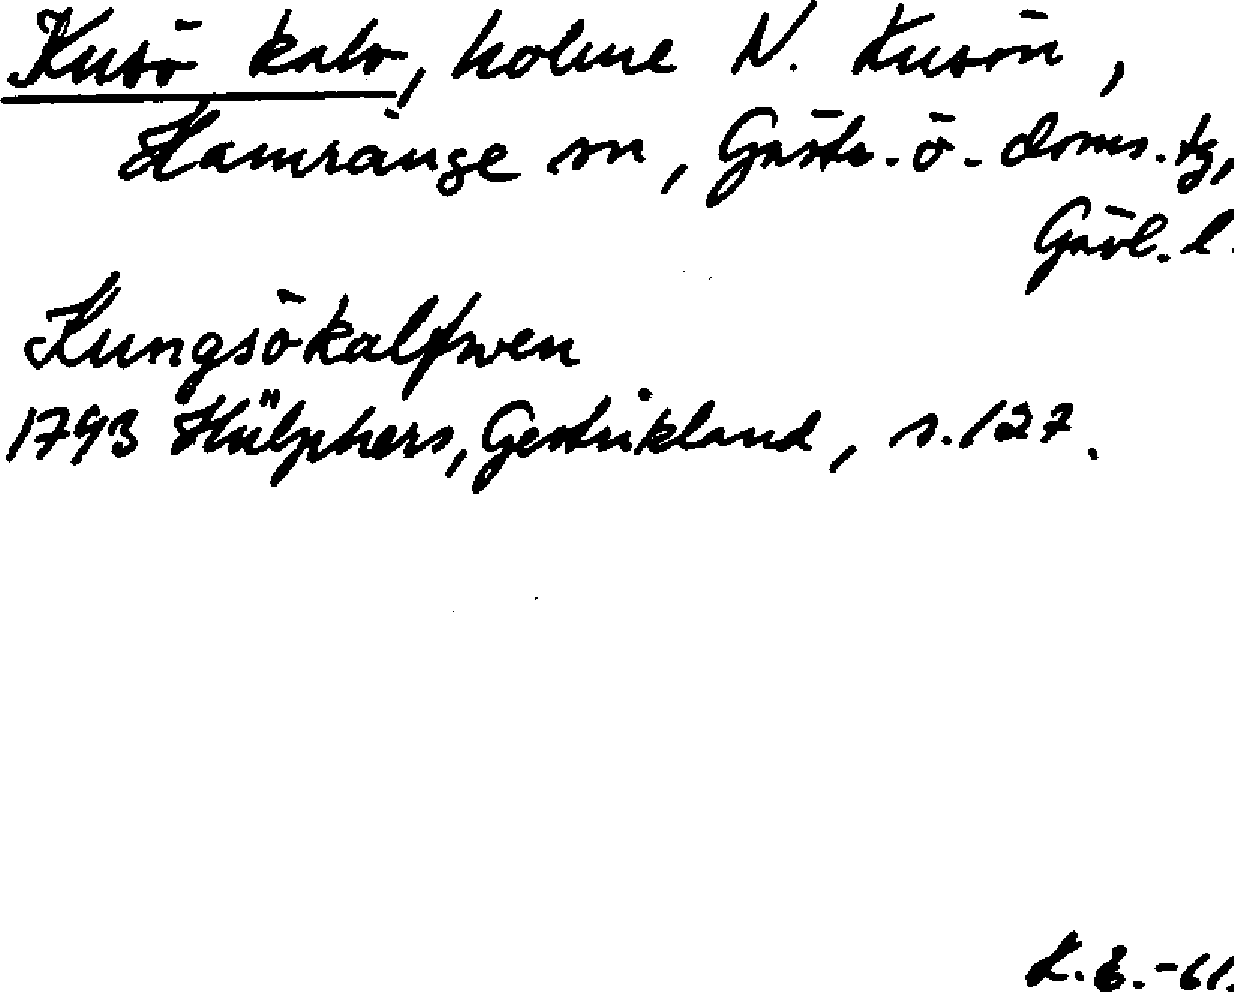 Kusö kalv, holme N. Kusön,
Hamrånge sn, Gästr. ö. doms. tg,
Gävl. l.
Kungsökalfwen
1793 Hülphers, Gestrikland, s. 127.
L.E.-61.